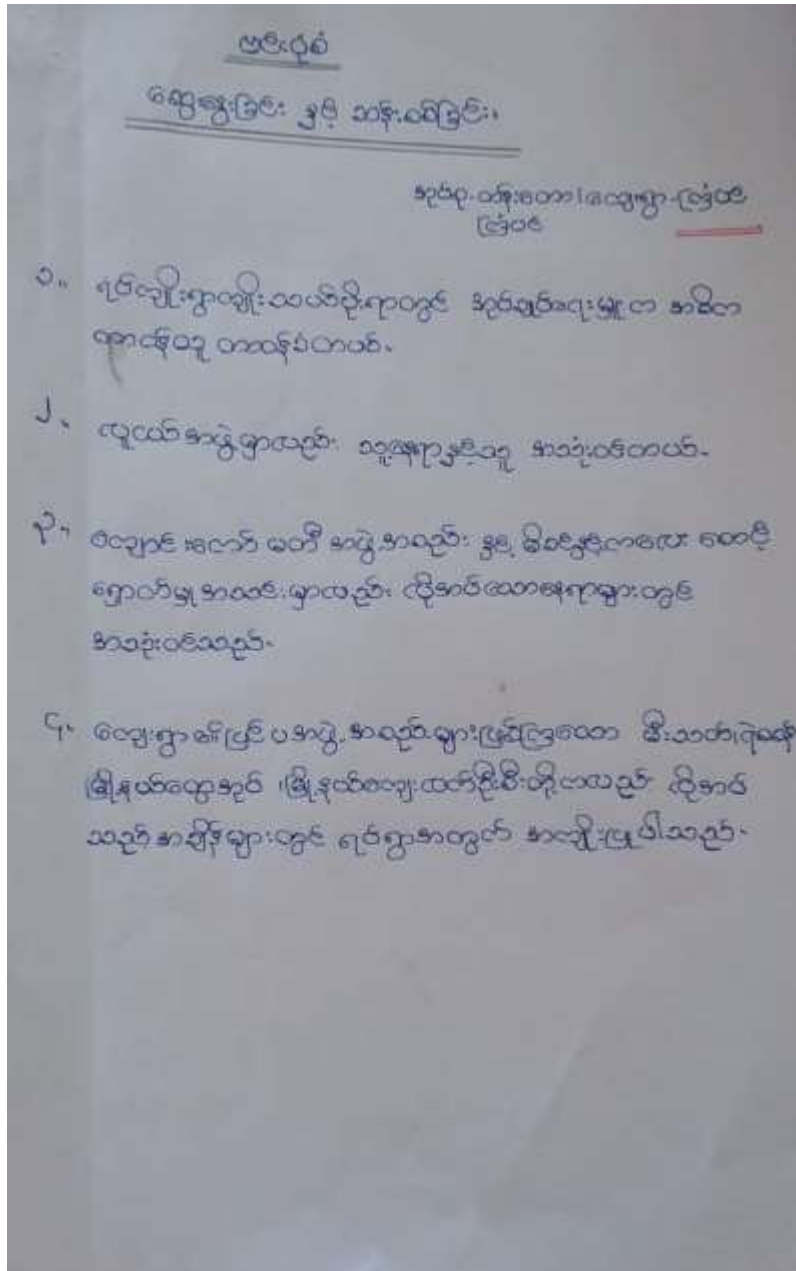 ဗင်းပုံစံ
ဆွေးနွေးခြင်း နှင့် သန်းစစ်ခြင်း၊
အုပ်စု-တန်းတော၊ကျေးရွာ-ကြံပင်
ကြံပင်
၁။ ရပ်ကျိုးရွာကျိုးသယ်ပိုးရာတွင် အုပ်ချုပ်ရေးမှူးက အဓိက
တာဝန်ယူ တာဝန်ခံတယ်။
၂။ လူငယ်အဖွဲ့မှာလည်း သူ့နေရာနှင့်သူ အသုံးဝင်တယ်။
၃။ ကျောင်းကော်မတီ အဖွဲ့အစည်း နှင့် မိခင်နှင့်ကလေး စောင့်
ရှောက်မှုအသင်းမှာလည်း လိုအပ်သောနေရာများတွင်
အသုံးဝင်သည်။
၄။ ကျေးရွာ၏ပြင်ပအဖွဲ့အစည်းများဖြစ်ကြသော မီးသတ်၊ရဲစခန်း
မြို့နယ်ထွေအုပ် ၊မြို့နယ်ကျေးလက်ဦးစီးတို့ကလည်း လိုအပ်
သည့်အချိန်များတွင် ရပ်ရွာအတွက် အကျိုးပြုပါသည်။